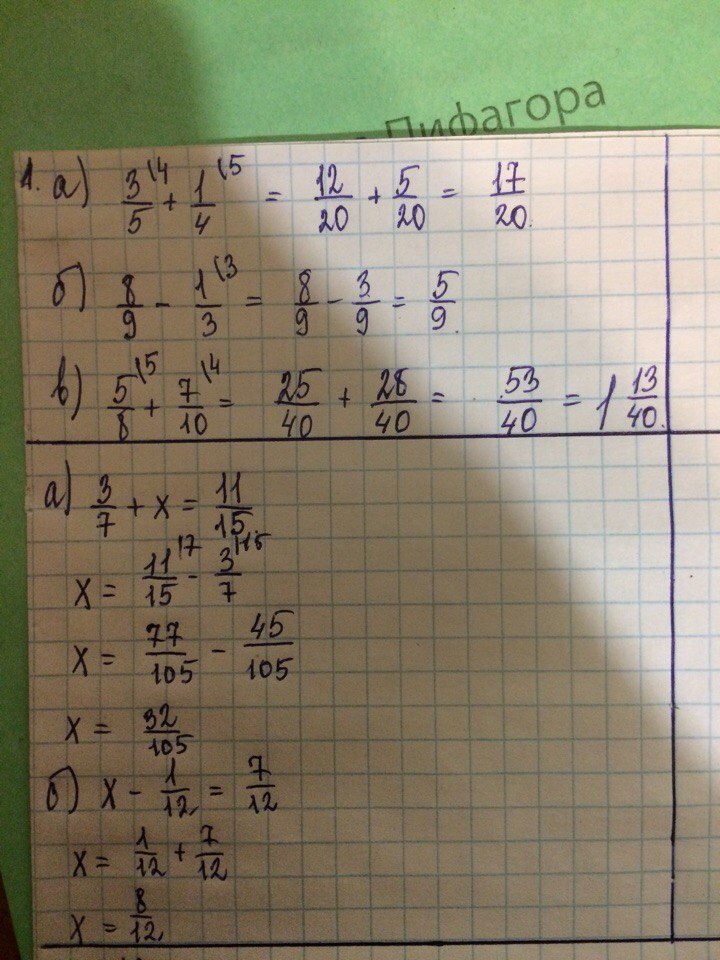 Пифагора
1. а) 3/5 \4 + 1/4 \5 = 12/20 + 5/20 = 17/20.
б) 8/9 - 1/3 \3 = 8/9 - 3/9 = 5/9.
в) 5/8 \5 + 7/10 \4 = 25/40 + 28/40 = 53/40 = 1 13/40.
а) 3/7 + x = 11/15
x = 11/15 \7 - 3/7 \15
x = 77/105 - 45/105
x = 32/105
б) x - 1/12 = 7/12
x = 1/12 + 7/12
x = 8/12